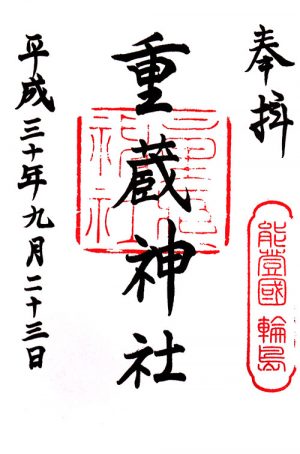 奉拝
能登國 輪島
重蔵神社
平成三十年九月二十三日